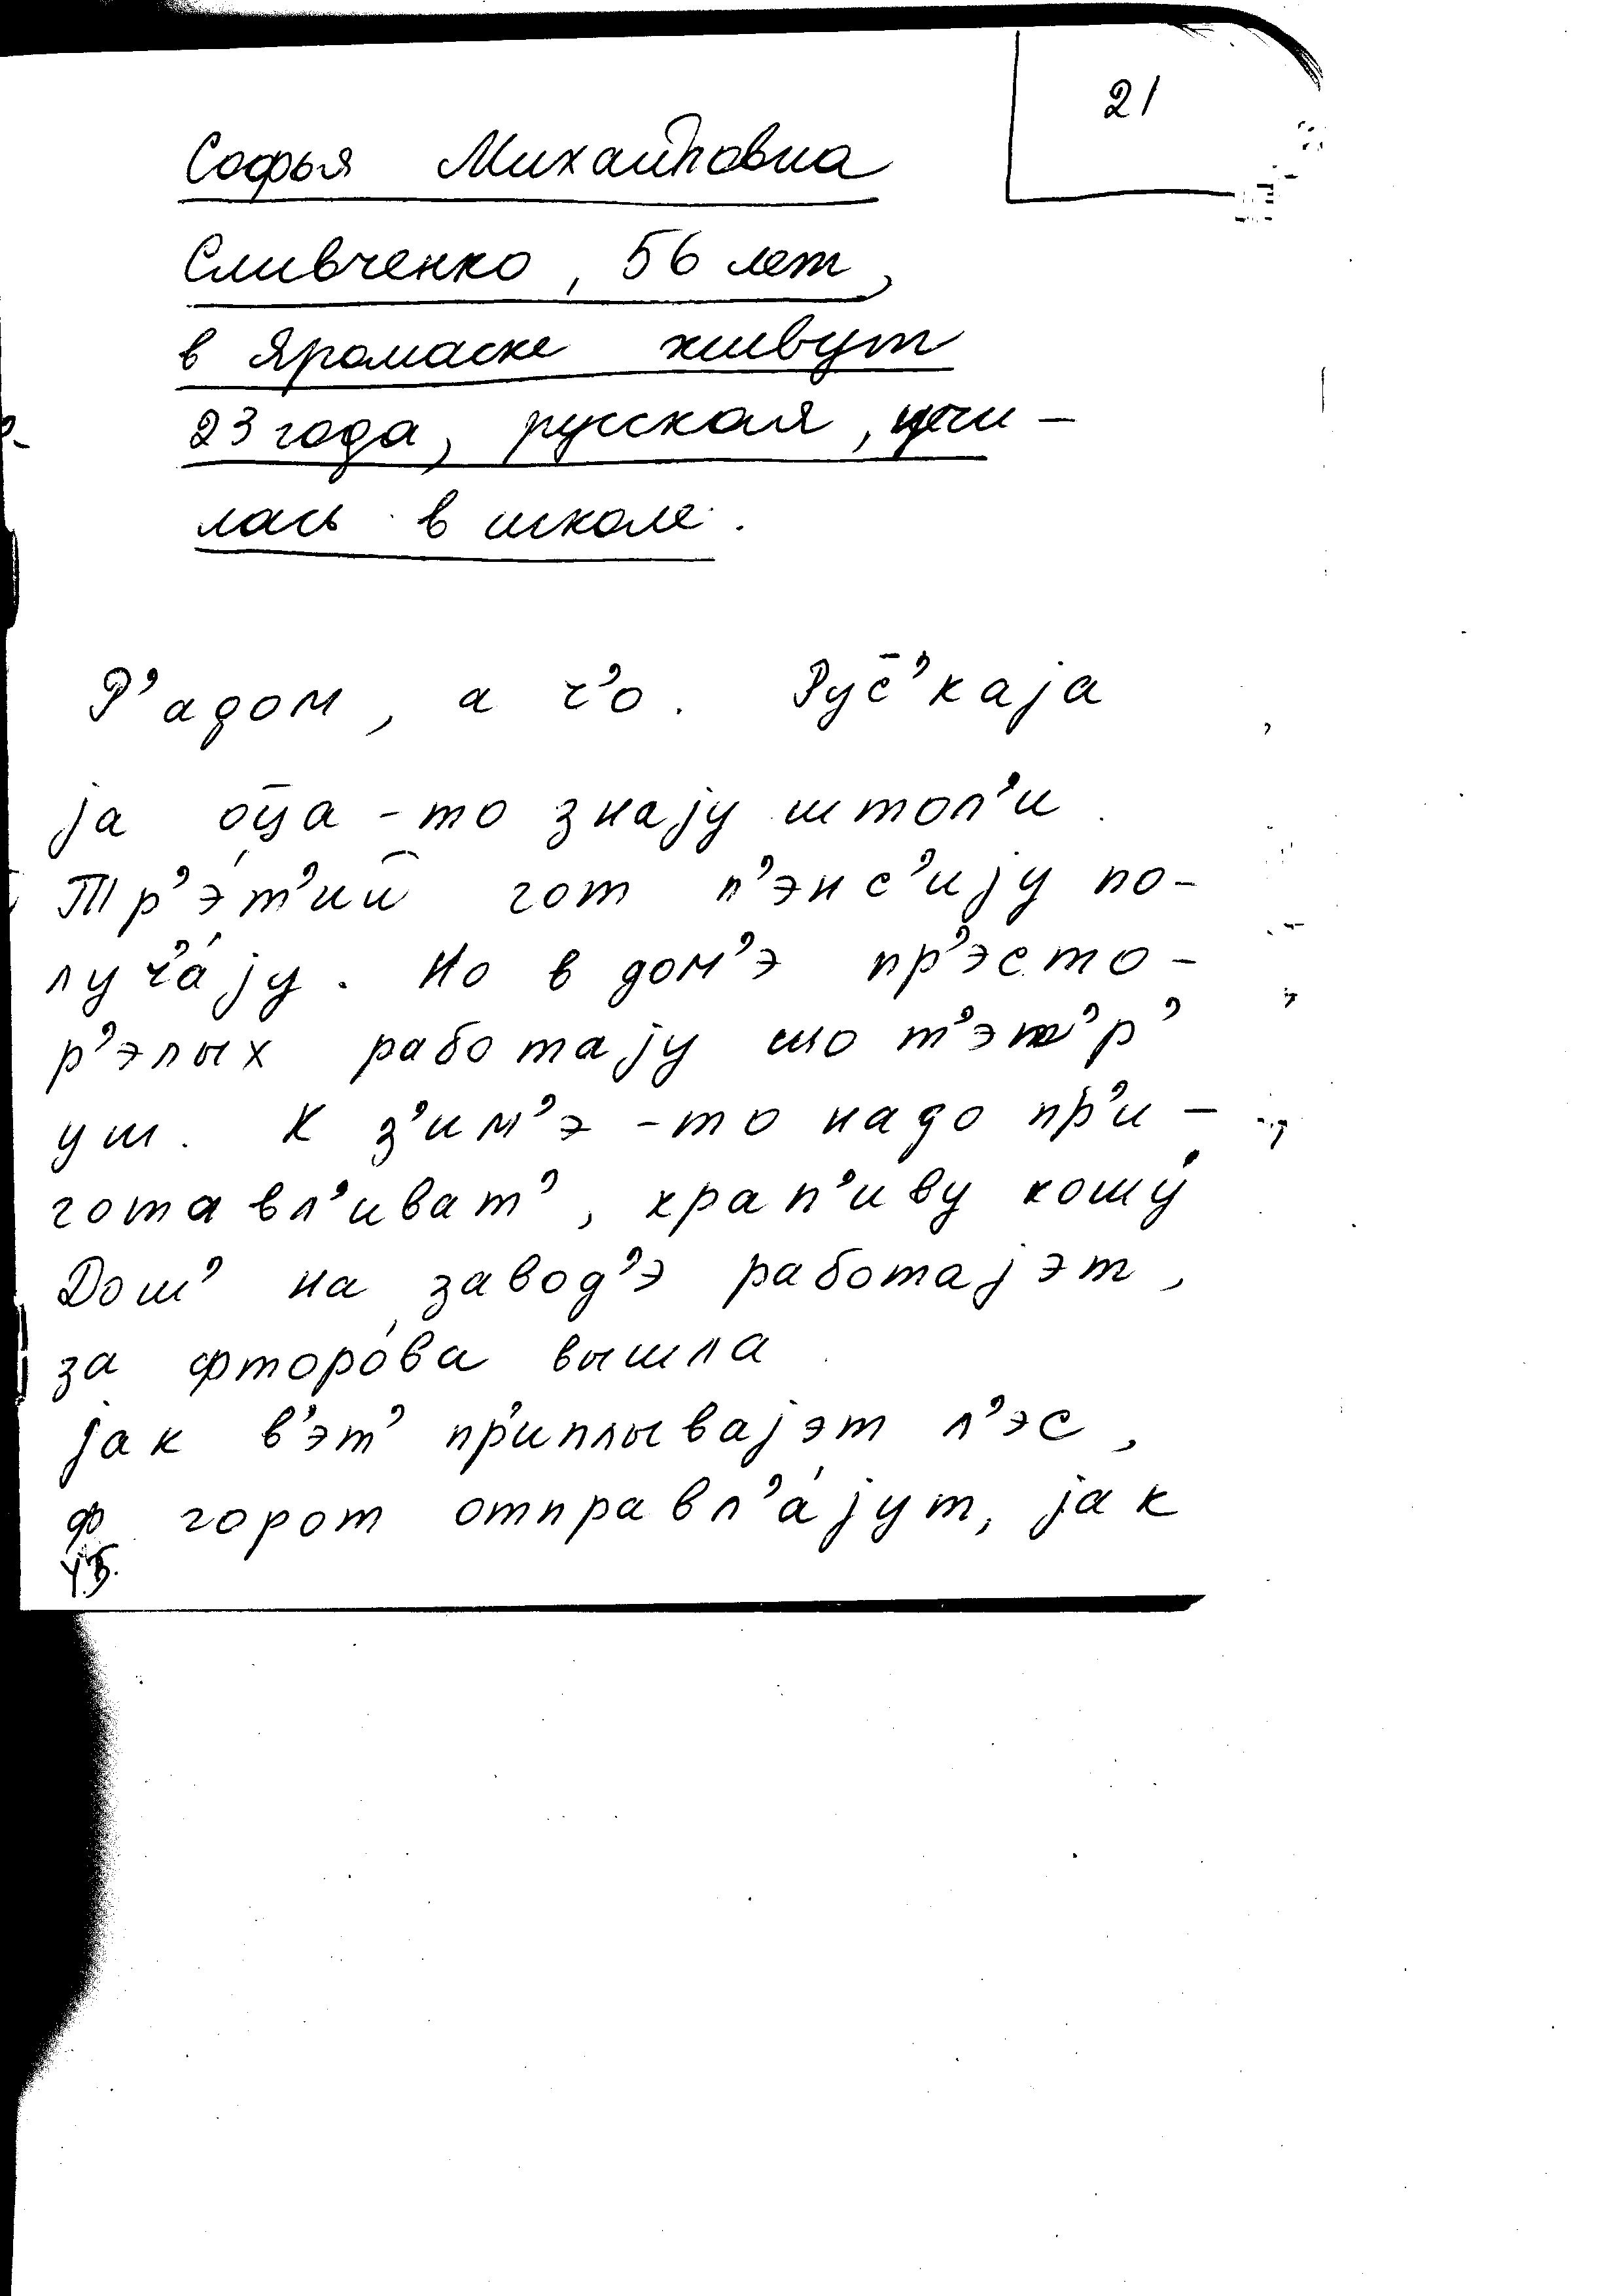 21
Софья Михайловна
Сливченко, 56 лет,
в Яромаске живут
23 года, русская, учи-
лась в школе.
Р’адом, а ч’о. Рус̄’каjа
jа оц̄а-то знаjу штол’и.
Тр’э́т’ий гот п’энс’иjу по-
луч’а́jу. Но в дом’э пр’эсто-
р’элых работаjу шо т’эп’р’
уш. К з’им’э-то надо пр’и-
готавл’иват’, крап’иву кошу́
Дош’ на завод’э работаjэт,
за фторо́ва вышла.
jак в’эт’ пр’иплываjэт л’эс,
ф горот отправл’а́jут, jак